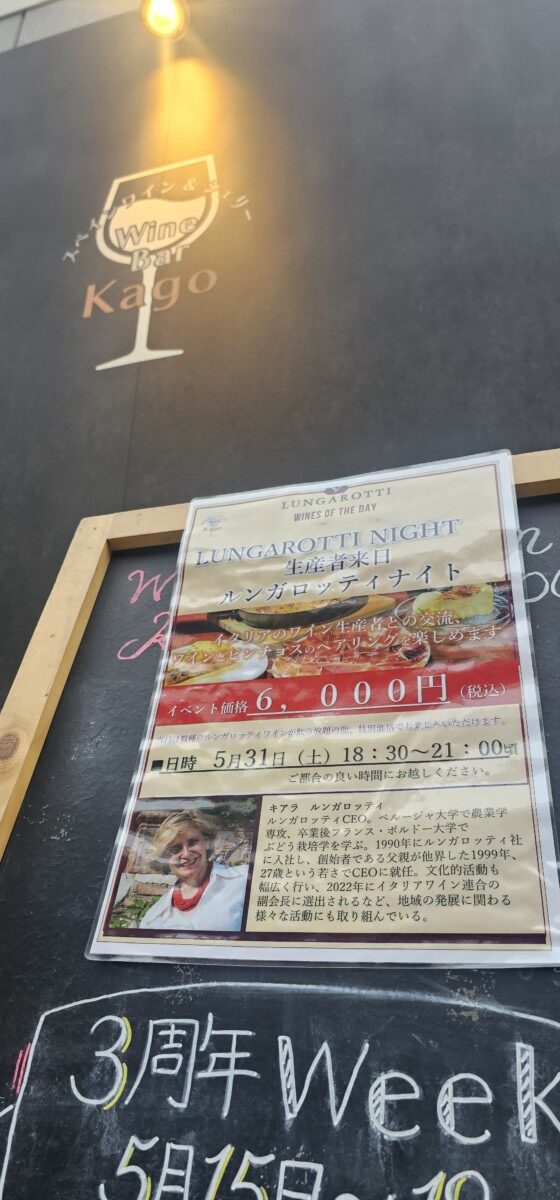 スペインワイン＆シェリー
Wine
Bar
Kago
LUNGAROTTI
WINES OF THE DAY
Kago
LUNGAROTTI NIGHT
生産者来日
ルンガロッティナイト
イタリアのワイン生産者との交流、
ワインとピンチョスのペアリングを楽しめます。
イベント価格 6，000円（税込）
数種のルンガロッティワインが飲み放題の他、特別価格でお楽しみいただけます。
■日時 5月31日（土）18：30～21：00頃
ご都合の良い時間にお越しください。
キアラ ルンガロッティ
ルンガロッティCEO。ペルージャ大学で農業学
専攻、卒業後フランス・ボルドー大学で
ぶどう栽培学を学ぶ。1990年にルンガロッティ社
に入社し、創始者である父親が他界した1999年、
27歳という若さでCEOに就任。文化的活動も
幅広く行い、2022年にイタリアワイン連合の
副会長に選出されるなど、地域の発展に関わる
様々な活動にも取り組んでいる。
3周年 Week
5月15日～19